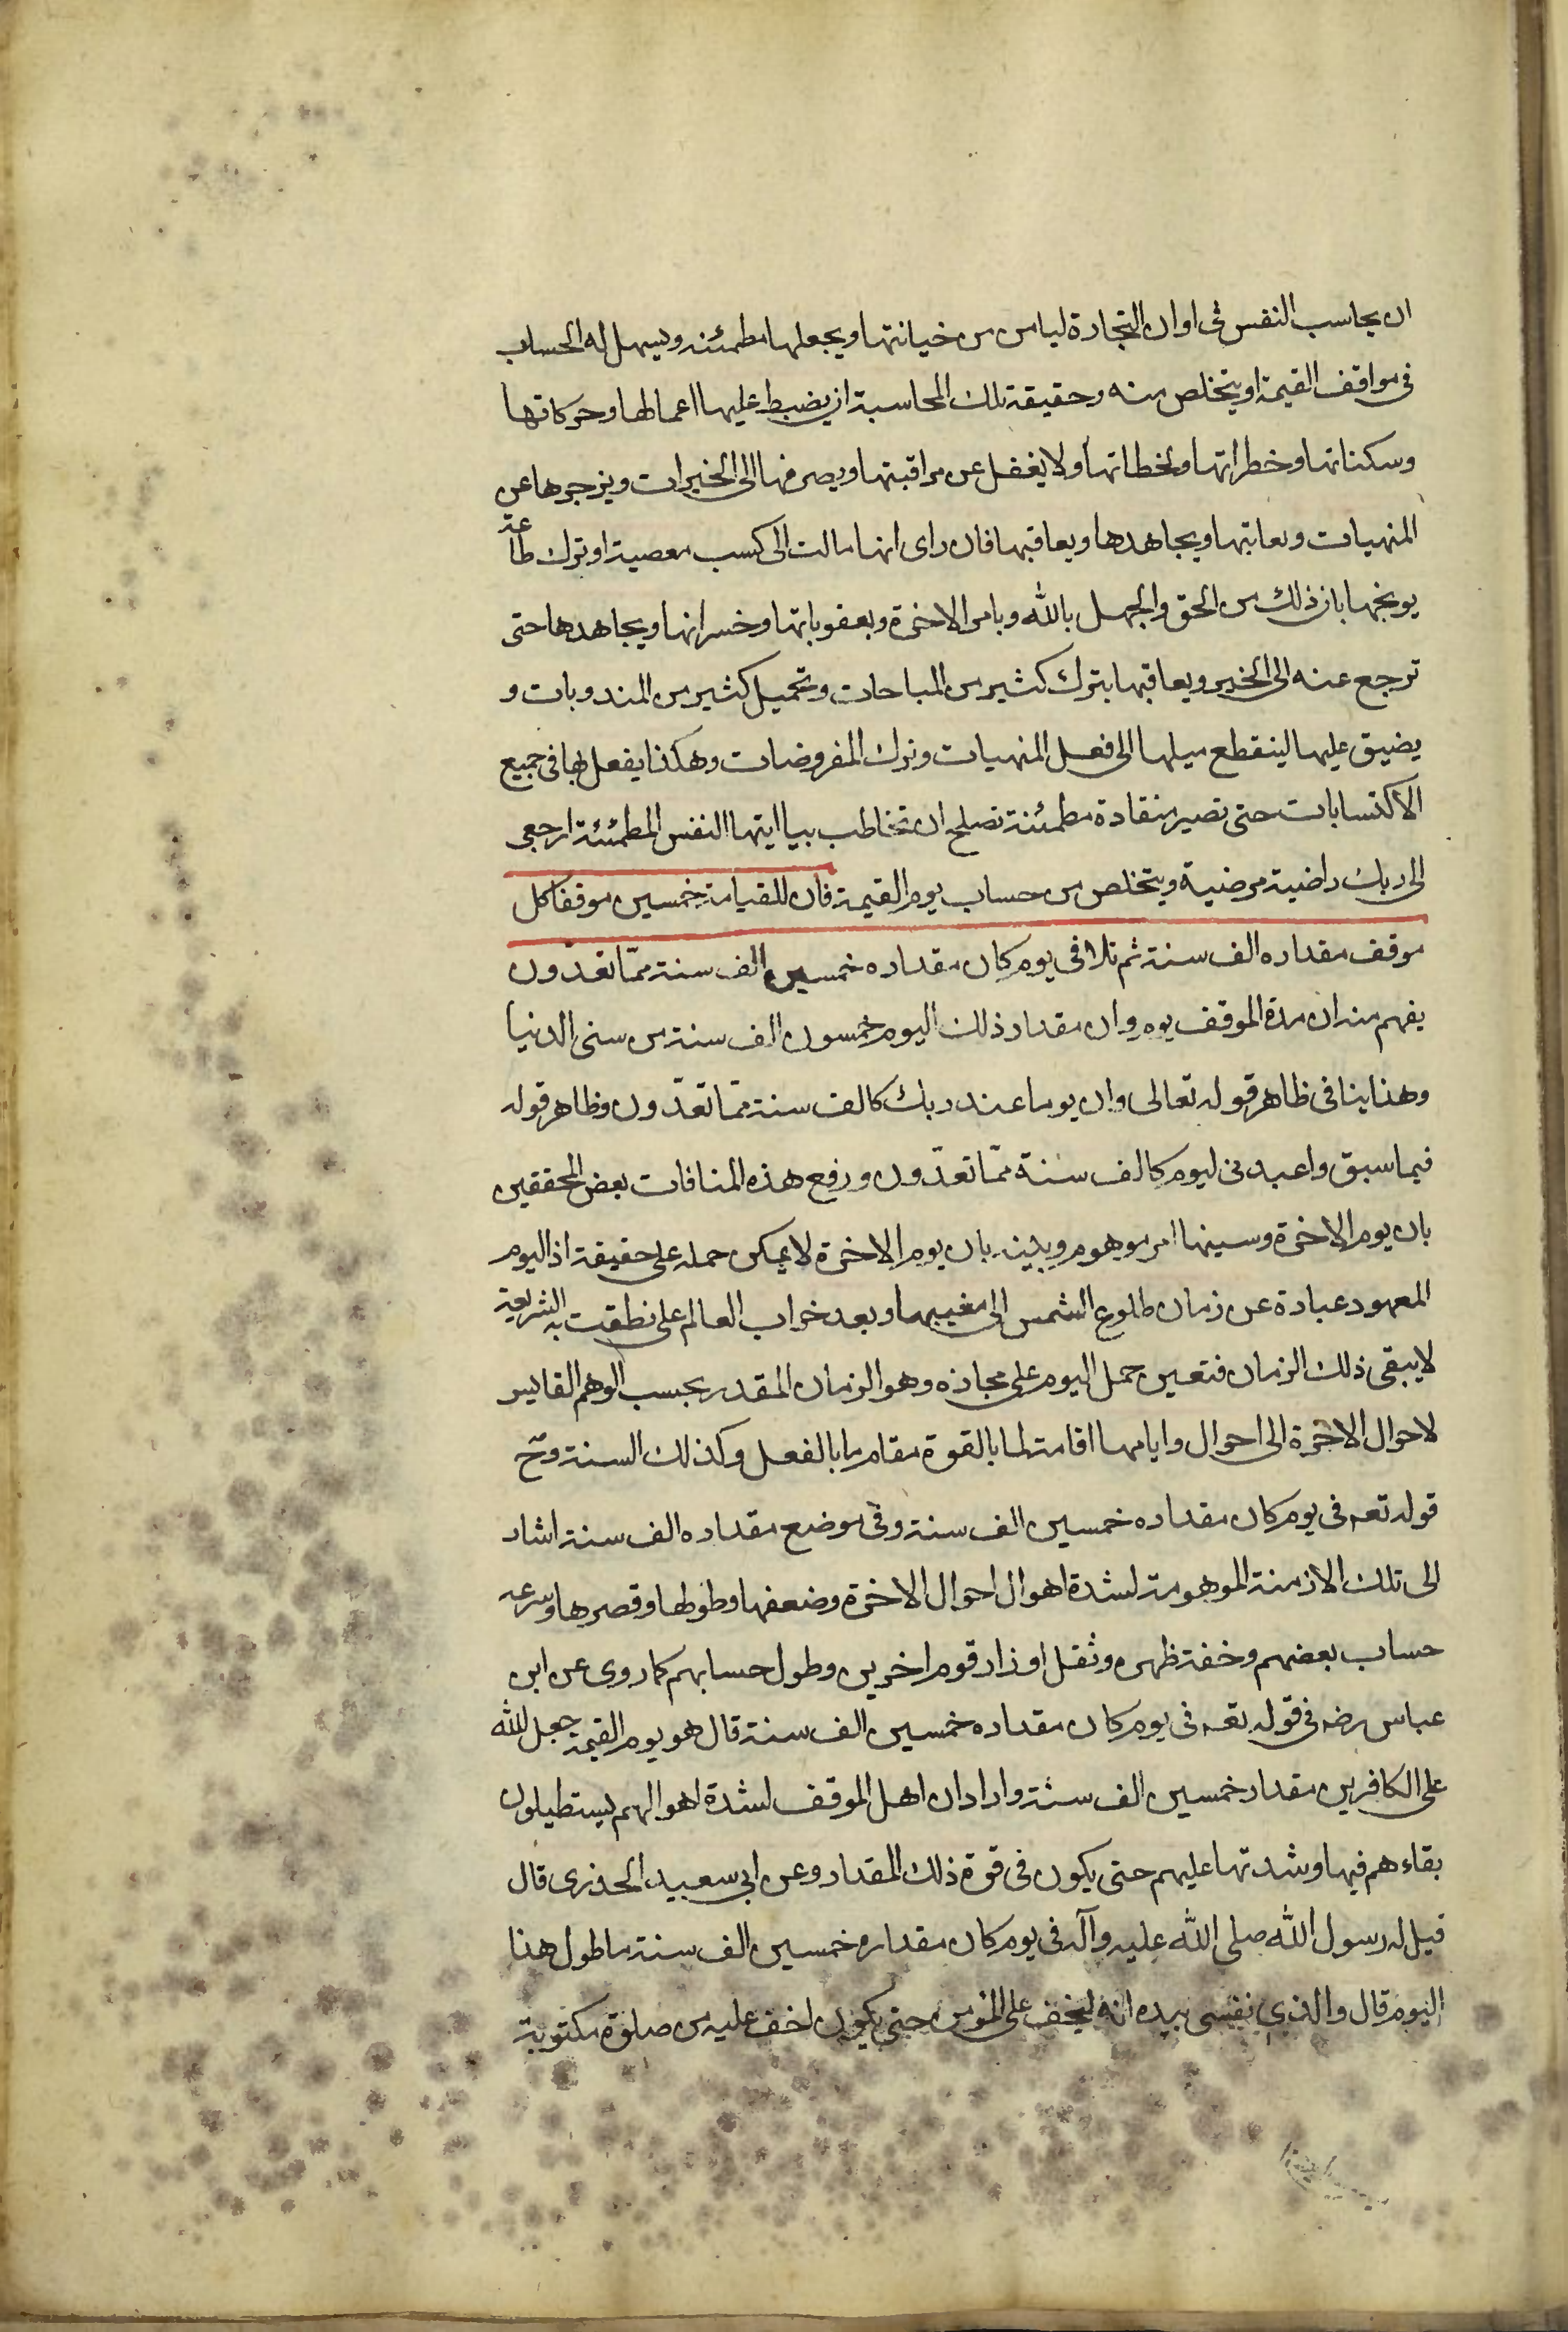 ان يحاسب النفس فى اوان التجارة ليامن من خيانتها ويجعلها مطمئنه ويسهل له الحساب
فى مواقف القيمة او يتخلص منه وحقيقة تلك المحاسبة ان يضبط عليها اعمالها وحركاتها
وسكناتها وخطراتها ولحظاتها ولا يغفل عن مراقبتها ويصرفها الى الخيرات ويزجرها عن
المنهيات ويعاتبها ويجاهدها ويعاقبها فان راى انها مالت الى كسب معصية او ترك طاعة
يوبخها بان ذلك من الحمق والجهل بالله وبامر الاخرة وبعقوباتها وخسرانها ويجاهدها حتى
ترجع عنه الى الخير ويعاقبها بترك كثير من المباحات وتحميل كثير من المندوبات و
يضيق عليها لينقطع ميلها الى فعل المنهيات وترك المفروضات وهكذا يفعل بها فى جميع
الاكتسابات حتى تصير منقادة مطمئنة تصلح ان تخاطب بيا ايتها النفس المطمئنة ارجعى
الى ربك راضية مرضية ويتخلص من حساب يوم القيمة فان للقيامة خمسين موقفا كل
موقف مقداره الف سنة ثم تلا فى يوم كان مقداره خمسين الف سنة ممّا تعدّون
يفهم منه ان مدة الموقف يوم وان مقدار ذلك اليوم خمسون الف سنة من سنى الدنيا
وهذا ينافى ظاهر قوله تعالى وان يوما عند ربك كالف سنة ممّا تعدّون وظاهر قوله
فيما سبق واعبدنى ليوم كالف سنة ممّا تعدّون ورفع هذه المنافات بعض المحققين
بان يوم الاخرة وسينها امر موهوم وبينه بان يوم الاخرة لا يمكن حمله على حقيقة اذ اليوم
المعهود عبارة عن زمان طلوع الشمس الى مغيبها وبعد خراب العالم على نطقت به الشريعة
لا يبقى ذلك الزمان فتعين حمل اليوم على مجازه وهو الزمان المقدر بحسب الوهم القايس
لاحوال الاخرة الى احوال وايامها اقامة لما بالقوة مقام ما بالفعل وكذلك السنة وح
قوله تعه فى يوم كان مقداره خمسين الف سنة وفى موضع مقداره الف سنة اشار
الى تلك الازمنة الموهومة لشدة اهوال احوال الاخرة وضعفها وطولها وقصرها وسرعه
حساب بعضهم وخفة ظهره وثقل اوزار قوم اخرين وطول حسابهم كما روى عن ابن
عباس رضه فى قوله تعه فى يوم كان مقداره خمسين الف سنة قال هو يوم القيمة جعل الله
على الكافرين مقدار خمسين الف سنة واراد ان اهل الموقف لشدة اهوالهم يستطيلون
بقاءهم فيها وشدتها عليهم حتى يكون فى قوة ذلك المقدار وعن ابى سعيد الخدرى قال
قيل لرسول الله صلى الله عليه وآله فى يوم كان مقداره خمسين الف سنة ما طول هذا
اليوم قال والذي نفسى بيده انه ليخف على المؤمن حتى يكون اخف عليه من صلوة مكتوبة